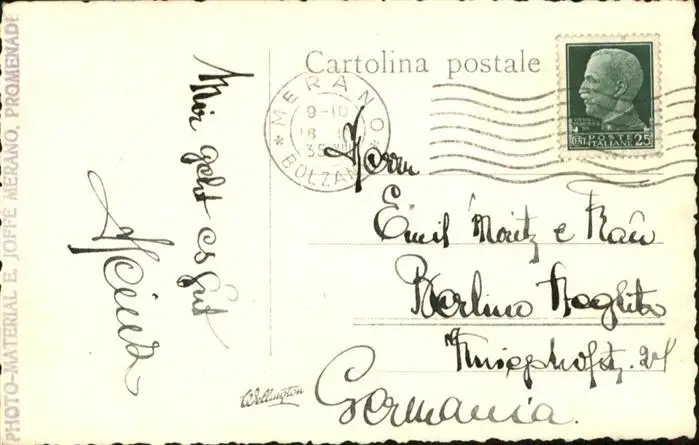 PHOTO-MATERIAL E. JOFFE MERANO, PROMENADE
Mir geht es gut
Heinz
Cartolina postale
* MERANO *
9-10
18
35
BOLZANO
CENT. POSTE 25
ITALIANE
Herrn
Emil Moritz e Frau
Berlino Steglitz
Germania.
Wellington